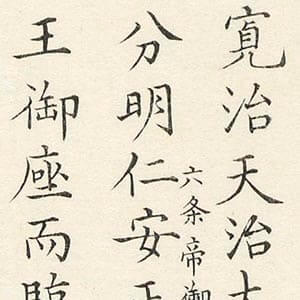 寛治天治
分明仁安
六条帝御
王御座而臨